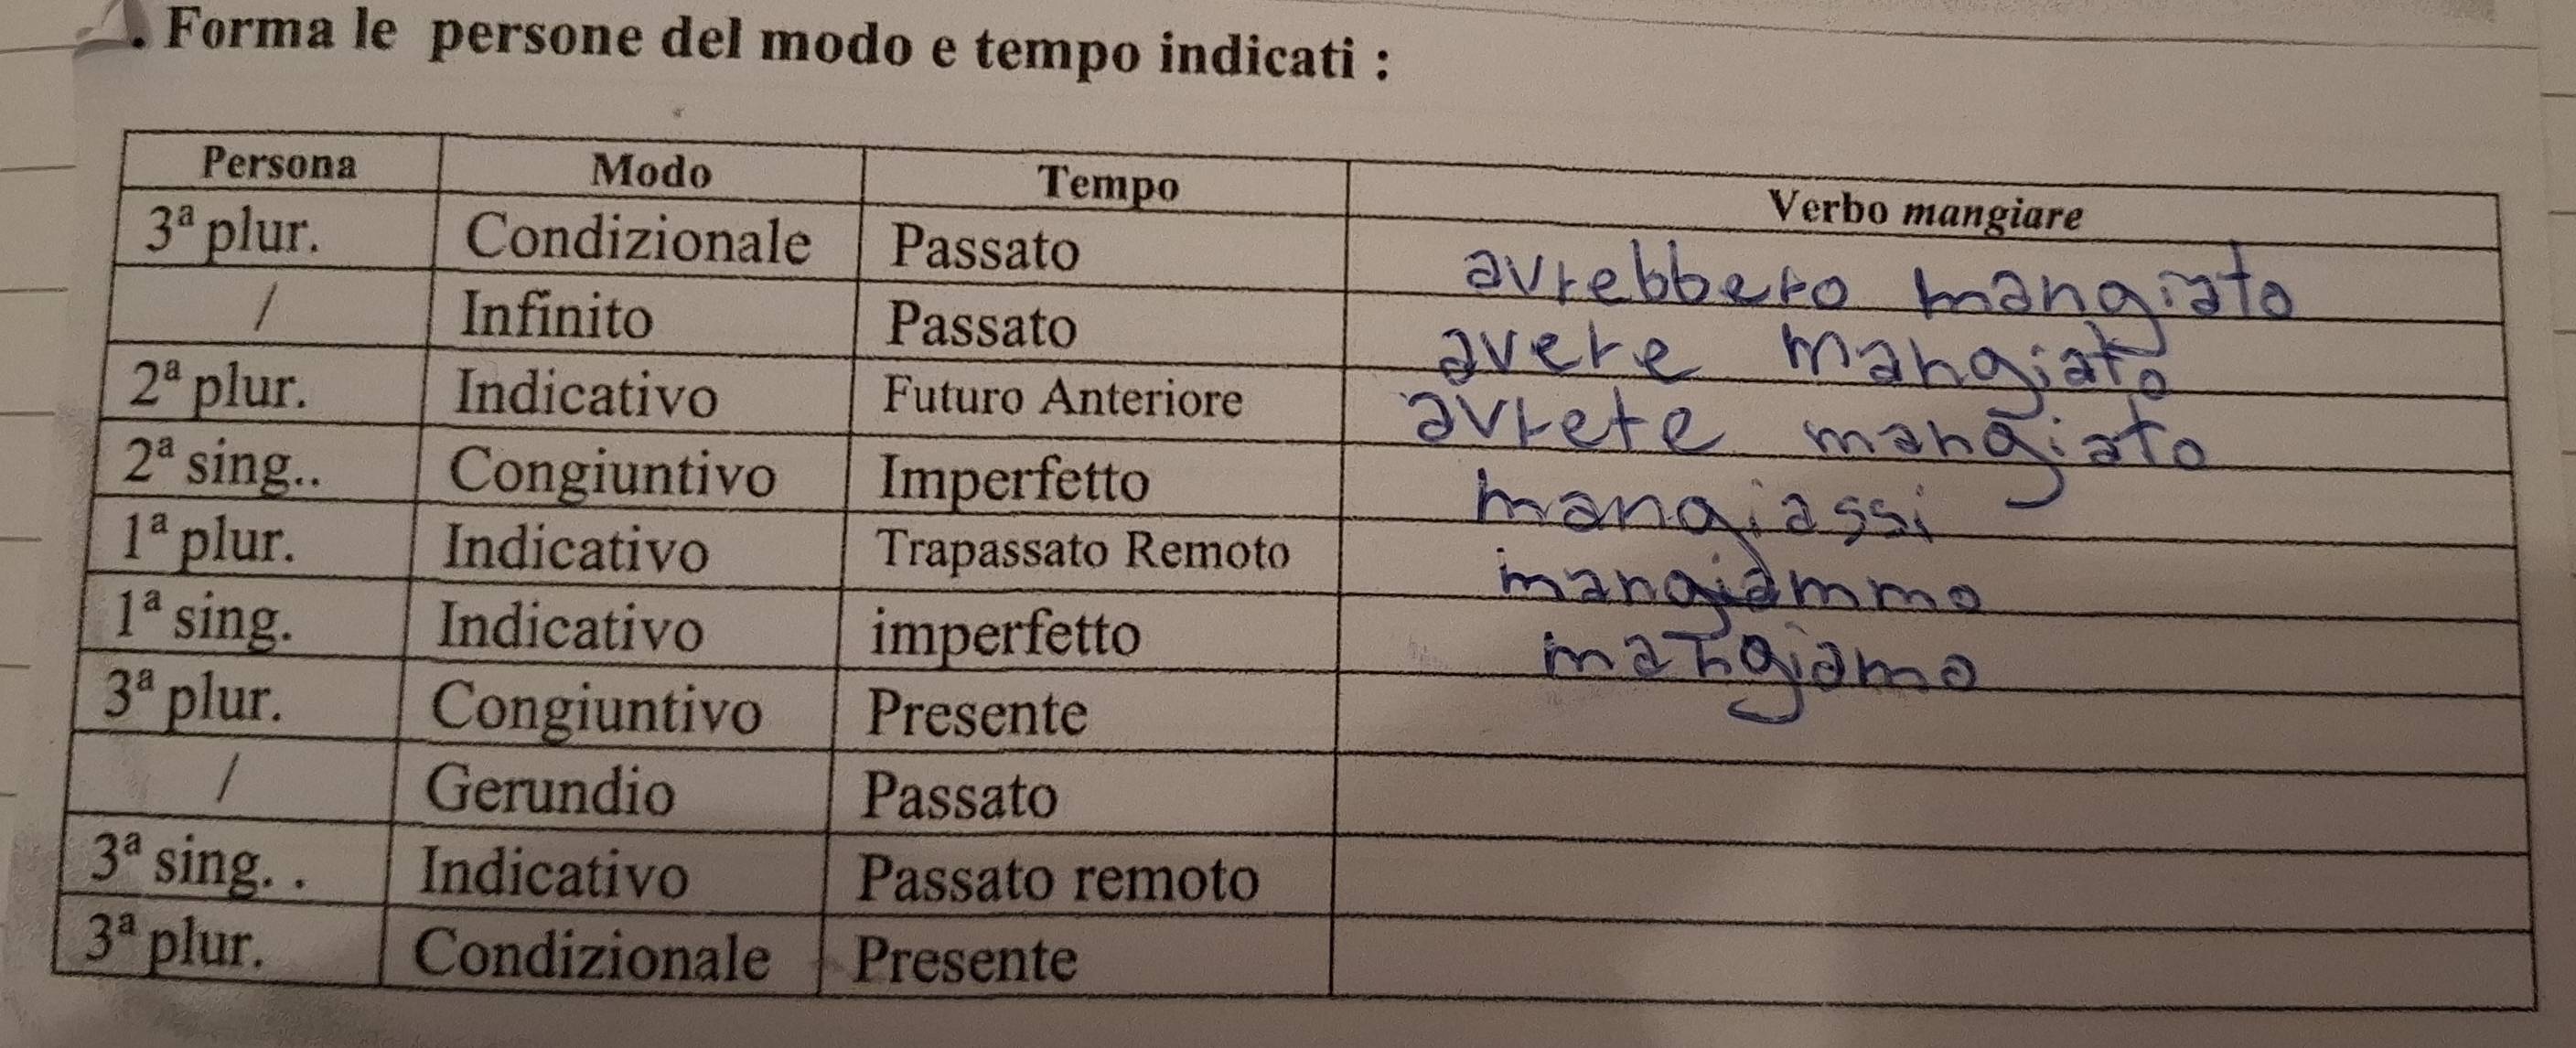 . Forma le persone del modo e tempo indicati :
Persona Modo Tempo Verbo mangiare
3ª plur. Condizionale Passato avrebbero mangiato
/ Infinito Passato avere mangiato
2ª plur. Indicativo Futuro Anteriore avrete mangiato
2ª sing.. Congiuntivo Imperfetto mangiassi
1ª plur. Indicativo Trapassato Remoto mangiammo
1ª sing. Indicativo imperfetto mangiamo
3ª plur. Congiuntivo Presente
/ Gerundio Passato
3ª sing. . Indicativo Passato remoto
3ª plur. Condizionale Presente